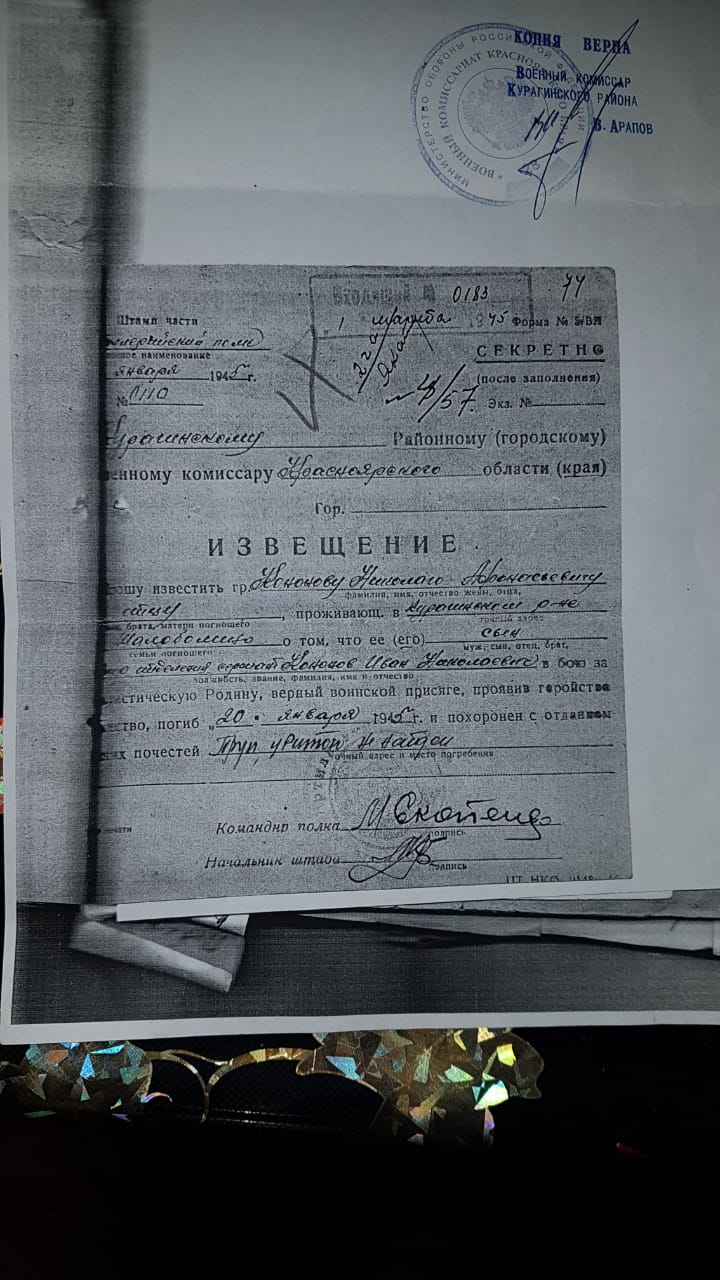 КОПИЯ ВЕРНА
ВОЕННЫЙ КОМИССАР
КУРАГИНСКОГО РАЙОНА
В. АРАПОВ
МИНИСТЕРСТВО ОБОРОНЫ РОССИЙСКОЙ ФЕДЕРАЦИИ
ВОЕННЫЙ КОМИССАРИАТ КРАСНОЯРСКОГО КРАЯ
0183 74
Штамп части
1 марта 1945 Форма № 5/ВЛ
полк
наименование
СЕКРЕТНО
января 1945 г.
(после заполнения)
№ 0110
4/57. Экз. №
Районному (городскому)
енному комиссару Красноярского области (края)
Гор.
ИЗВЕЩЕНИЕ
ошу известить гр. Кононову Николаю Афонасьевичу
фамилия, имя, отчество жены, отца,
отцу, проживающ. в р-не
брата, матери погибшего точный адрес
о том, что ее (его) сын
семьи погибшего муж, сын, отец, брат,
отделения сержант Кононов Иван Николаевич в бою за
должность, звание, фамилия, имя и отчество
стическую Родину, верный воинской присяге, проявив геройство
ество, погиб „20" января 1945 г. и похоронен с отданием
х почестей Труп убитого не найден
очный адрес и место погребения
Командир полка
подпись
Начальник штаба
подпись